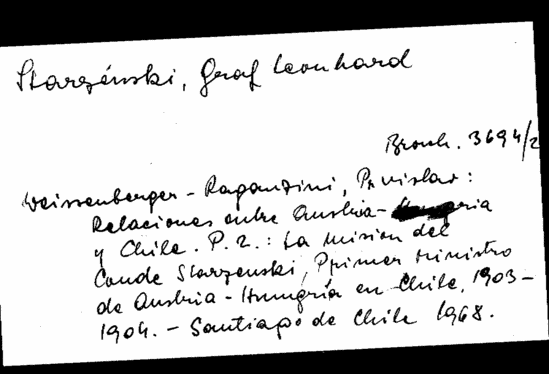 Starzénski, Graf Leonhard
Brosch. 3694/2
Weissenberger-Raganzini, Prvislav:
Relaciones entre Austria-Hungria
y Chile. P. 2.: La mision del
Conde Starzenski, Primer Ministro
de Austria-Hungría en Chile, 1903-
1904. - Santiago de Chile 1968.